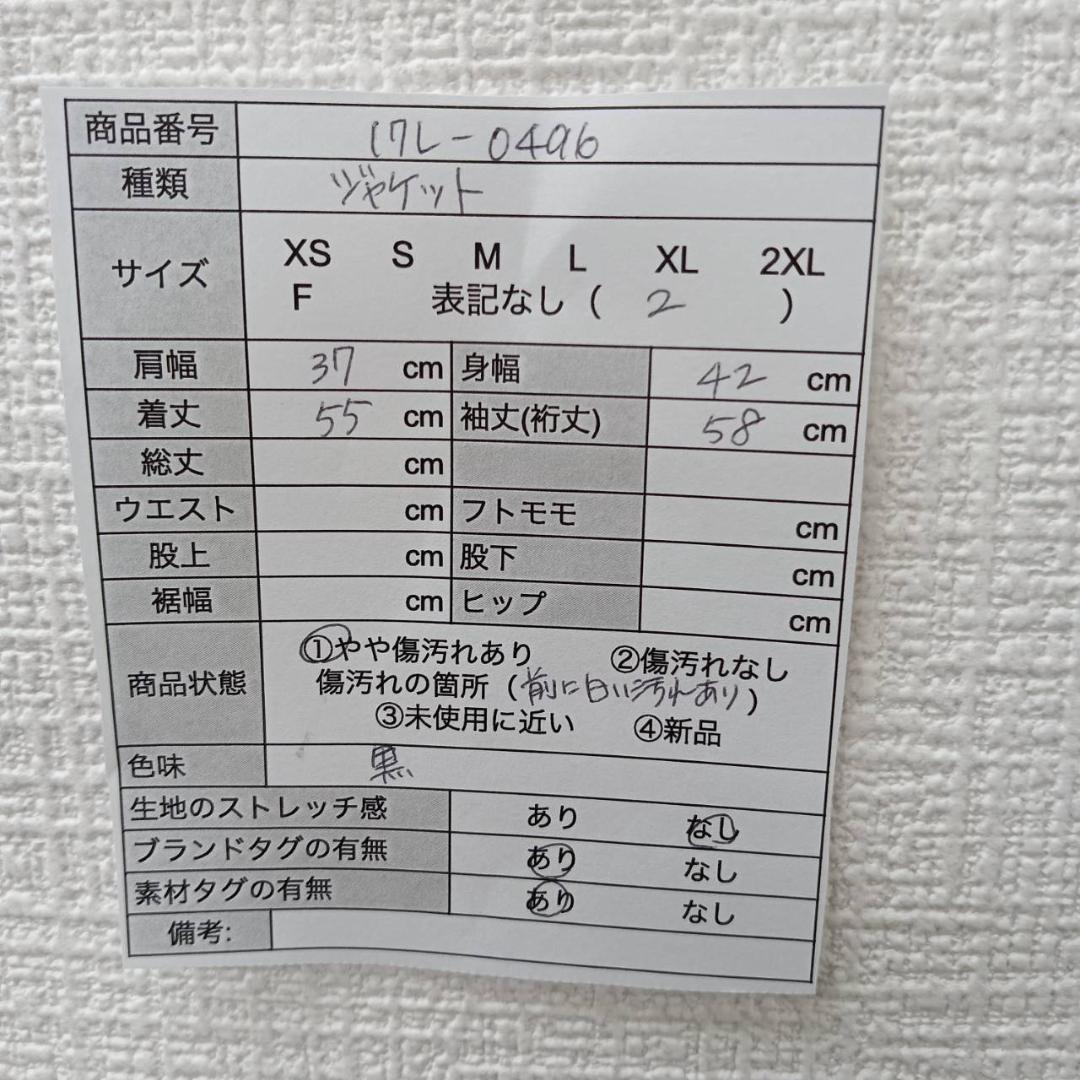 商品番号 17L-0496
種類 ジャケット
サイズ XS S M L XL 2XL
F 表記なし ( 2 )
肩幅 37 cm 身幅 42 cm
着丈 55 cm 袖丈(裄丈) 58 cm
総丈 cm
ウエスト cm フトモモ cm
股上 cm 股下 cm
裾幅 cm ヒップ cm
商品状態 ①やや傷汚れあり ②傷汚れなし
傷汚れの箇所 (前に白い汚れあり)
③未使用に近い ④新品
色味 黒
生地のストレッチ感 あり なし
ブランドタグの有無 あり なし
素材タグの有無 あり なし
備考: